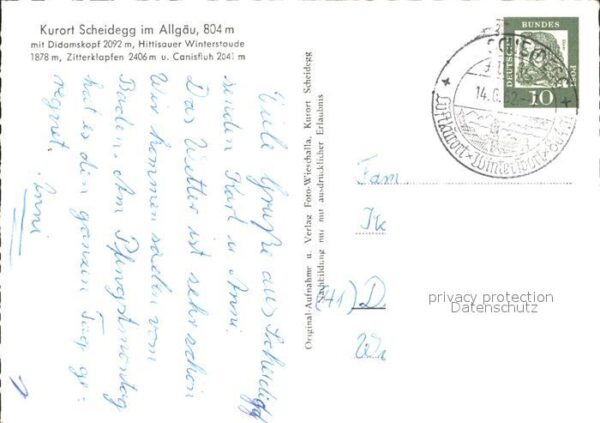 Kurort Scheidegg im Allgäu, 804 m
mit Didamskopf 2092 m, Hittisauer Winterstaude
1878 m, Zitterklapfen 2406 m u. Canisfluh 2041 m
Viele Grüße aus Scheidegg
senden Karl u Anni.
Das Wetter ist sehr schön
Wir kommen soeben vom
Baden. Am Pfingstmontag
hat es den ganzen Tag ge-
regnet. Anni
Original-Aufnahme u. Verlag Foto-Wieschalla, Kurort Scheidegg
Nachbildung nur mit ausdrücklicher Erlaubnis
DEUTSCHE BUNDES POST
10
14.6.62
Luftkurort
Fam
(41) D
privacy protection
Datenschutz